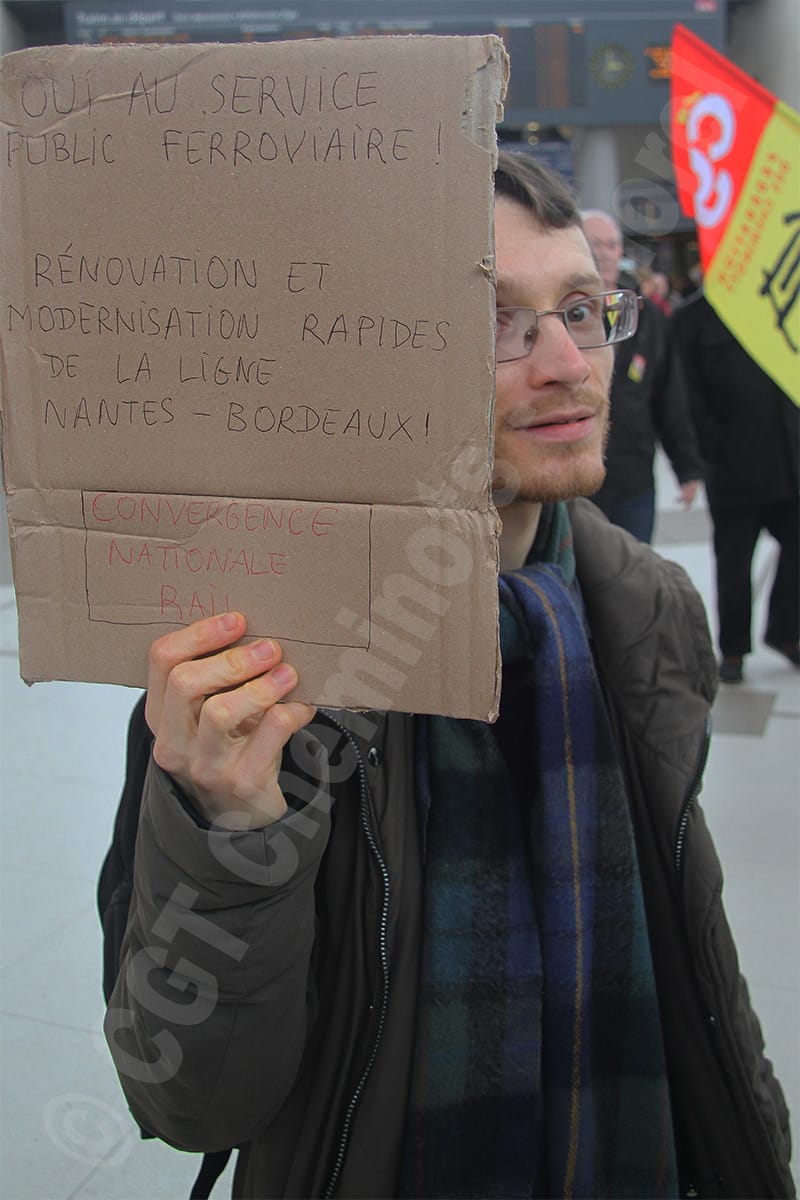 OUI AU SERVICE
PUBLIC FERROVIAIRE !
RÉNOVATION ET
MODERNISATION RAPIDES
DE LA LIGNE
NANTES - BORDEAUX !
CONVERGENCE
NATIONALE
RAIL
© CGT Cheminots